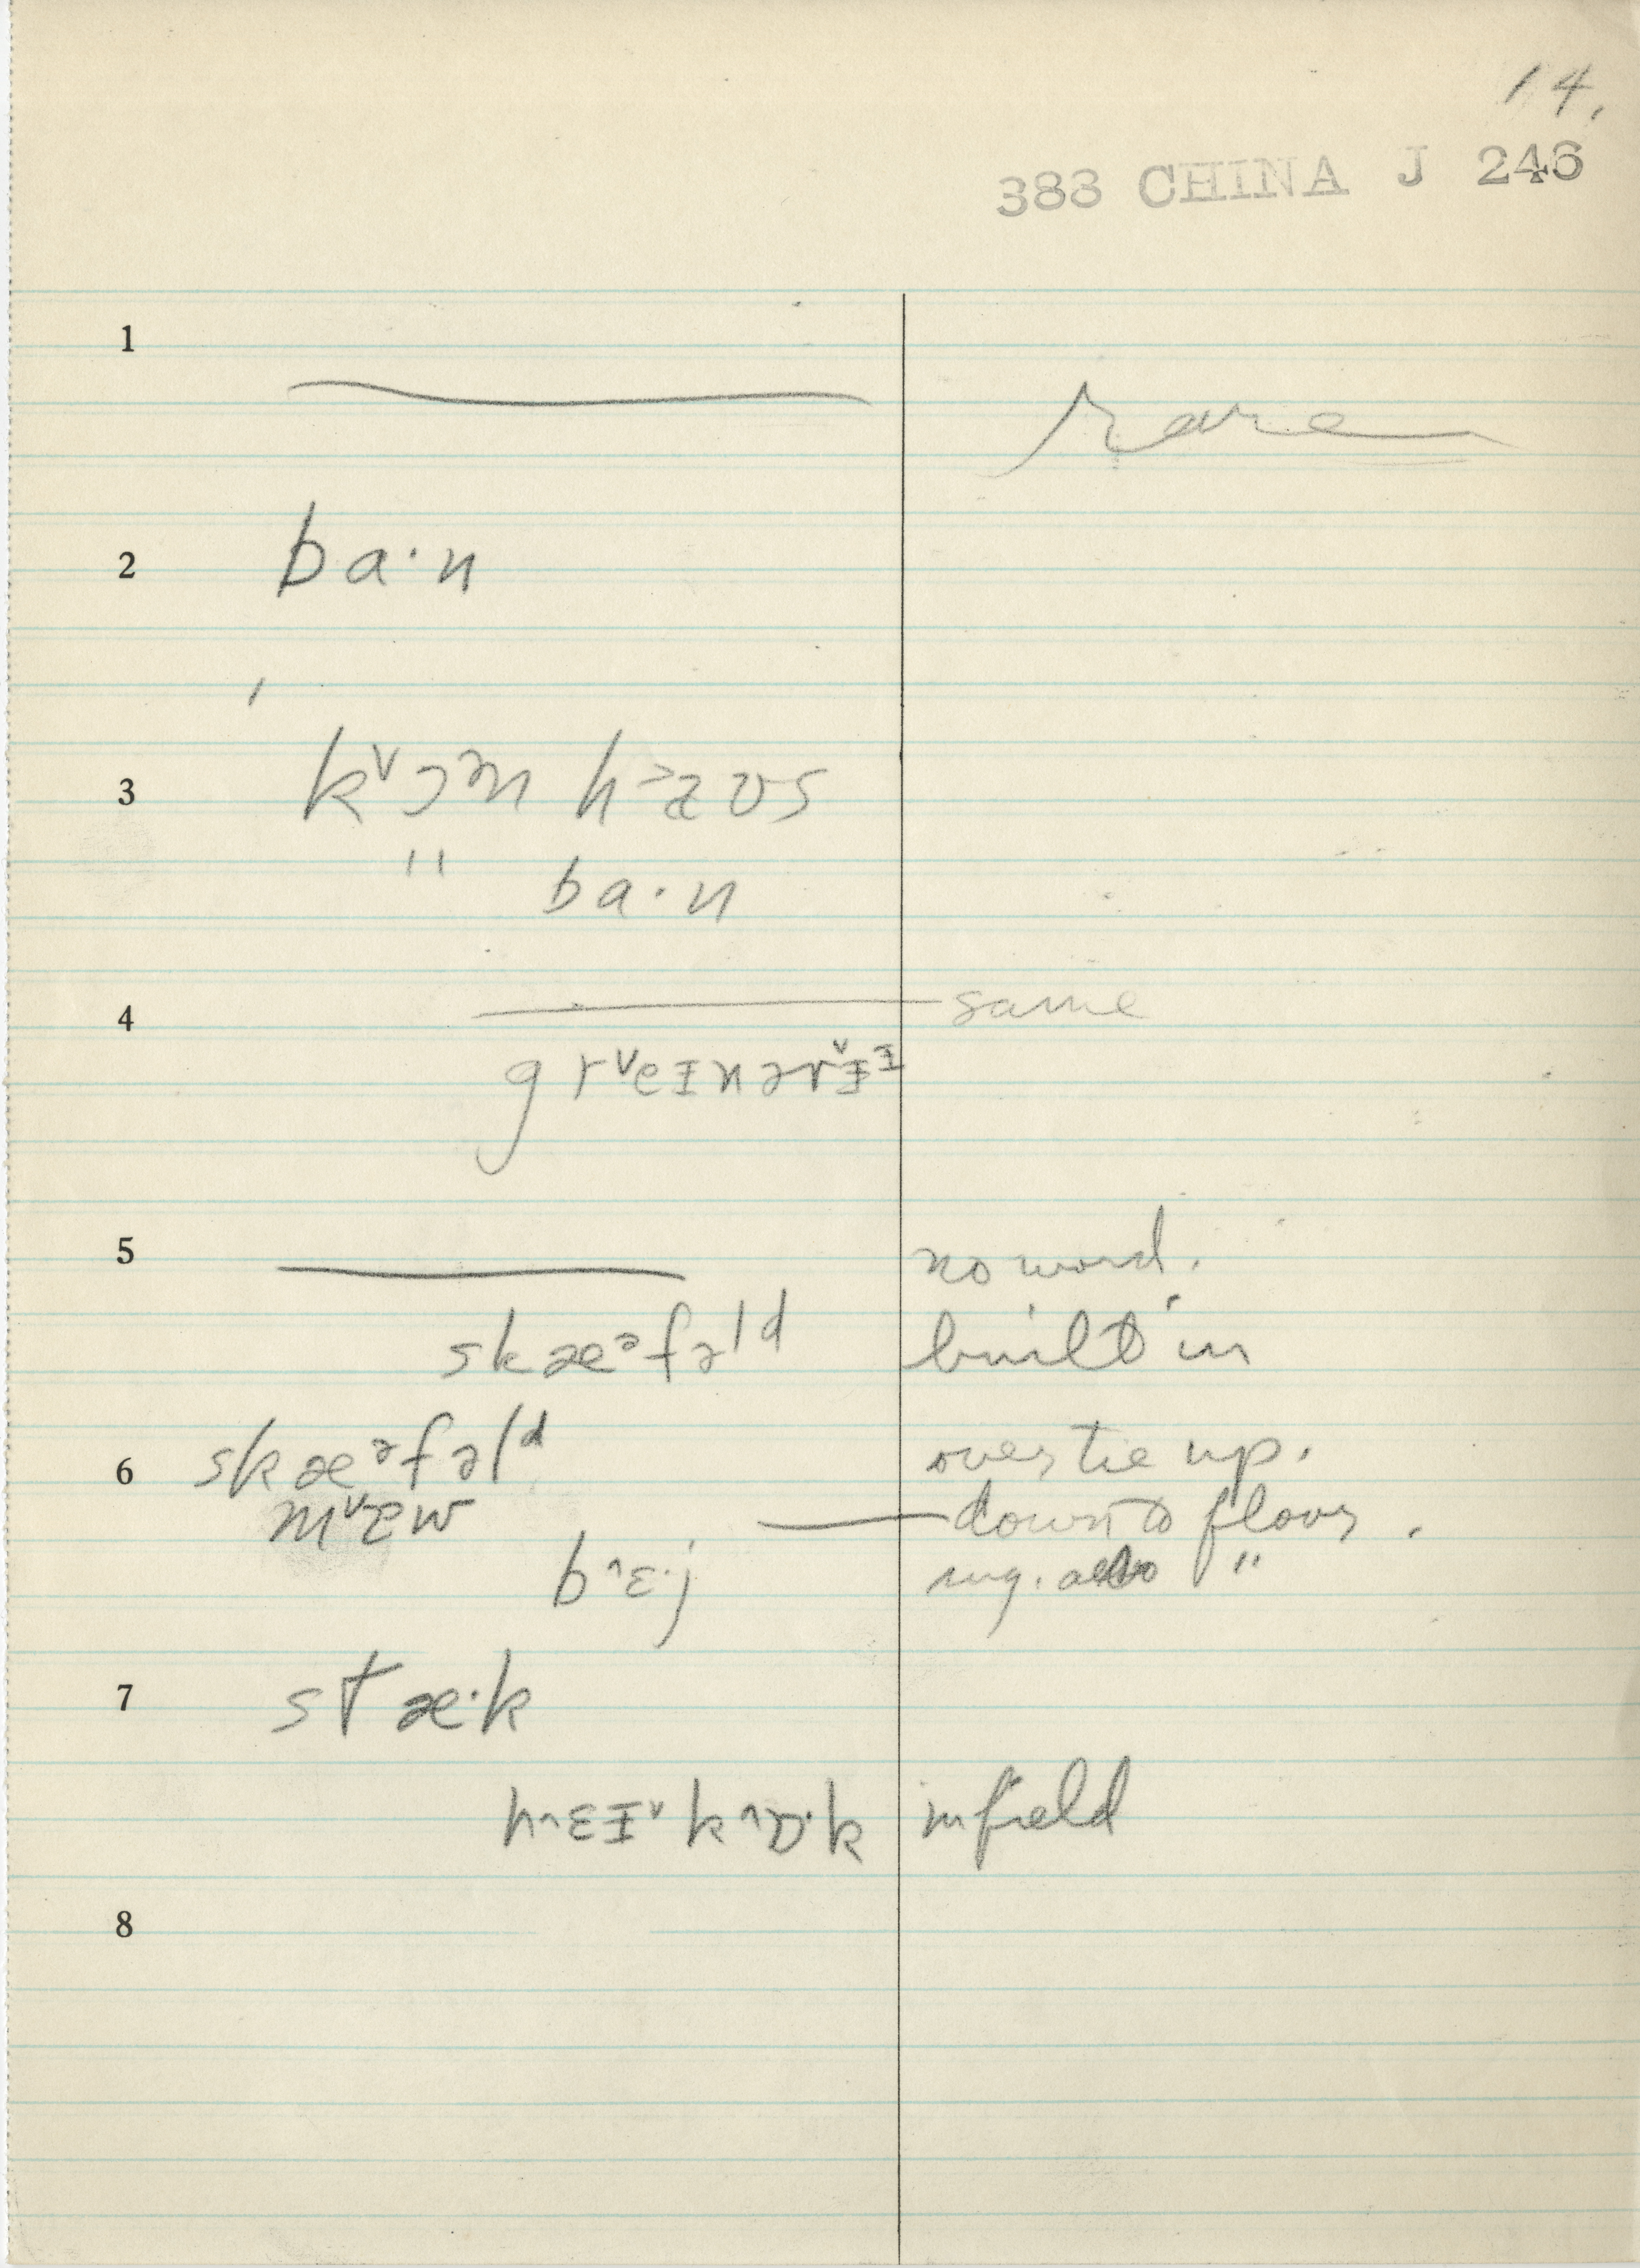 14.
383 CHINA J 246
1
rare
2 ba·n
3 kˇɔᵊn h˃aʊs
" ba·n
4 same
grˇeɪnərˇɪᶦ
5 no word.
skæᵊfəld built in
6 skæᵊfəlᵈ over tie up.
mˇɛw down to floor.
bˆɛ·j sug. also "
7 stæ·k
hˆɛɪˇ kˆɒ·k in field
8